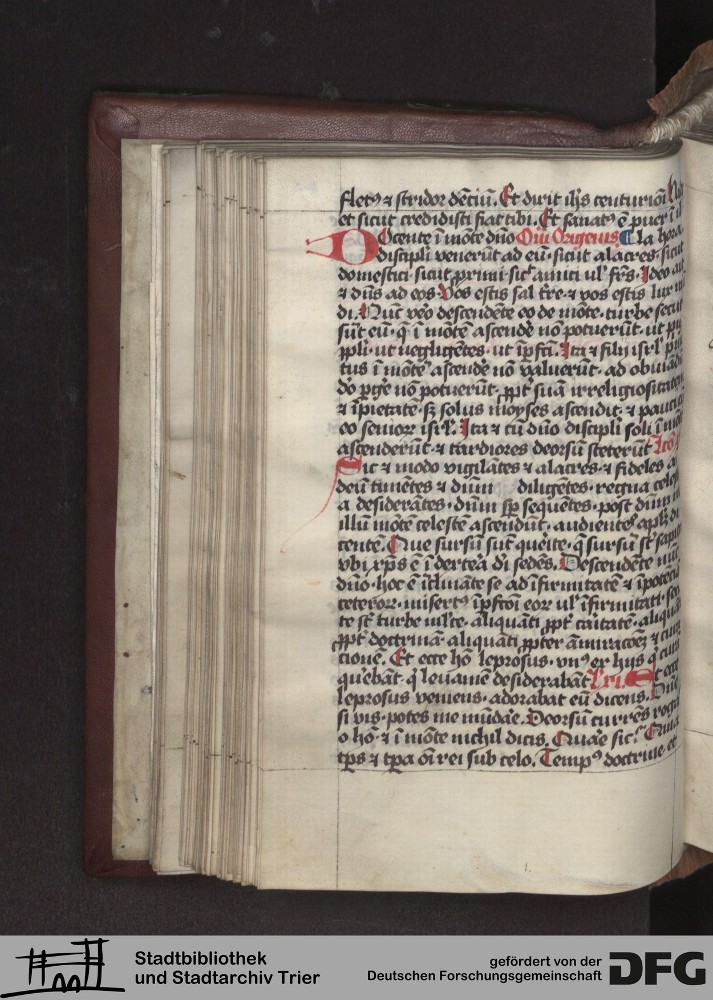 fletꝰ ⁊ stridor dēciū. Et dixit ihs centurioi
et sicut credidisti fiat tibi. Et sanatꝰ ē puer ī il
Docente ī mōte dn̄o Om̄. Origenis la hora
discipli venerūt ad eū sicut alacres. sicut
domestici. sicut primi. sic amici vl' frs. Ideo
⁊ dn̄s ad eos Vos estis sal tre. ⁊ vos estis lux
di. Nūc vo descendēte eo de mōte. turbe secut
sūt eū. q̄ ī mōtē ascende nō potuerūt. ut
ppli. ut negligētes. ut īpfci. Ita ⁊ filii isrl'
tus ī mōtē ascende nō valuerūt. ad
do pge nō potuerūt. ppt suā irreligiositatē
⁊ īpietatē. sꝫ solus moyses ascendit. ⁊ pauci
eo senior isrl'. Ita ⁊ cū dn̄o discipli soli ī
ascenderūt. ⁊ tardiores deorsū steterūt
Sic ⁊ modo vigilātes ⁊ alacres. ⁊ fideles
deū timētes ⁊ diuī diligētes. regna
a desiderātes. dn̄m sp sequētes. post dn̄m
illū mōtē celestē ascendūt. audientes
centē. Que sursū sūt querite. q̄ sursū st sap
vbi xps ē ī dextea di sedēs. Descendēte
dn̄o. hoc ē īclināte se ad īfirmitatē ⁊ īpotēci
ceteror. misertꝰ īpfcōi eor vl' īfirmitati.
te st turbe mlte. aliquāti ppt caritatē. aliqua
ppt doctrinā. aliquāti ppter āmiracōeꝫ ⁊
cionē. Et ecce hō leprosus. vnꝰ ex hiis q
querebāt. q̄ leuamē desiderabāt Et ecce
leprosus veniens. adorabat eū dicens. Dn̄e
si vis. potes me mūdare. Deorsū currēs
o hō. ⁊ ī mōte nichil dicis. Quare sic.
tps ⁊ tpa oī rei sub celo. Tempꝰ doctrine.
Stadtbibliothek
und Stadtarchiv Trier
gefördert von der
Deutschen Forschungsgemeinschaft
DFG